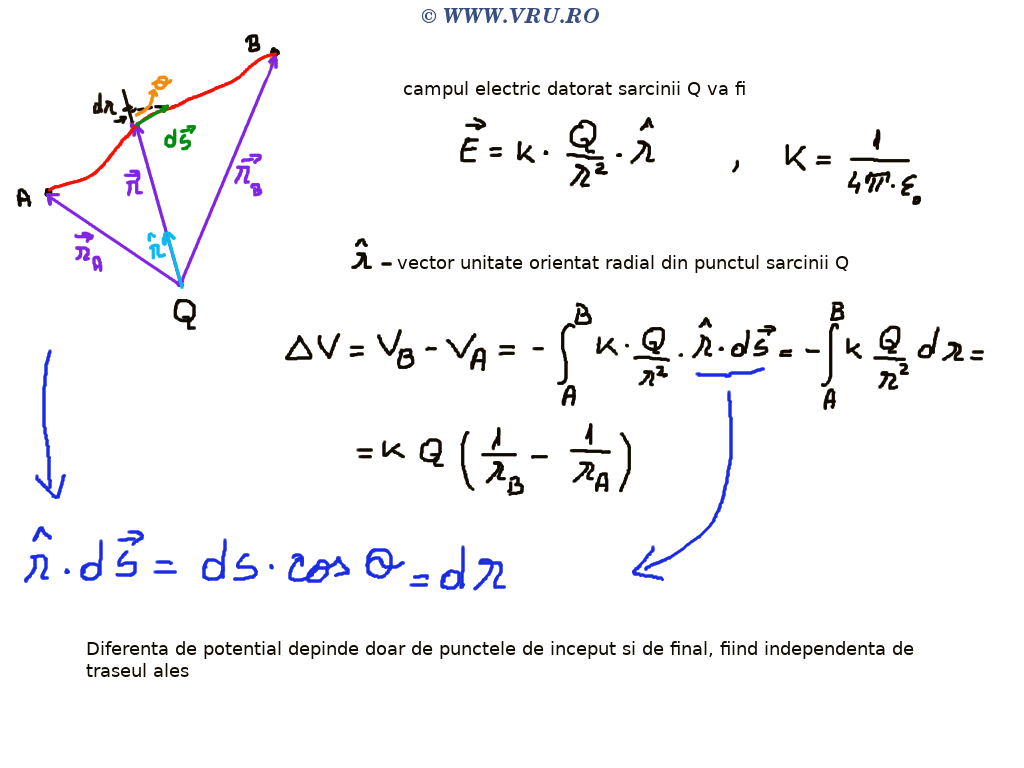 © WWW.VRU.RO
B
θ
dr
ds⃗
campul electric datorat sarcinii Q va fi
E⃗ = K · Q/r² · r̂ , K = 1/(4π·ε₀)
r⃗
r⃗_B
A
r⃗_A
r̂
Q
r̂ – vector unitate orientat radial din punctul sarcinii Q
ΔV = V_B - V_A = - ∫_A^B K · Q/r² · r̂ · ds⃗ = - ∫_A^B K Q/r² dr =
= K Q (1/r_B - 1/r_A)
r̂ · ds⃗ = ds · cos θ = dr
Diferenta de potential depinde doar de punctele de inceput si de final, fiind independenta de
traseul ales